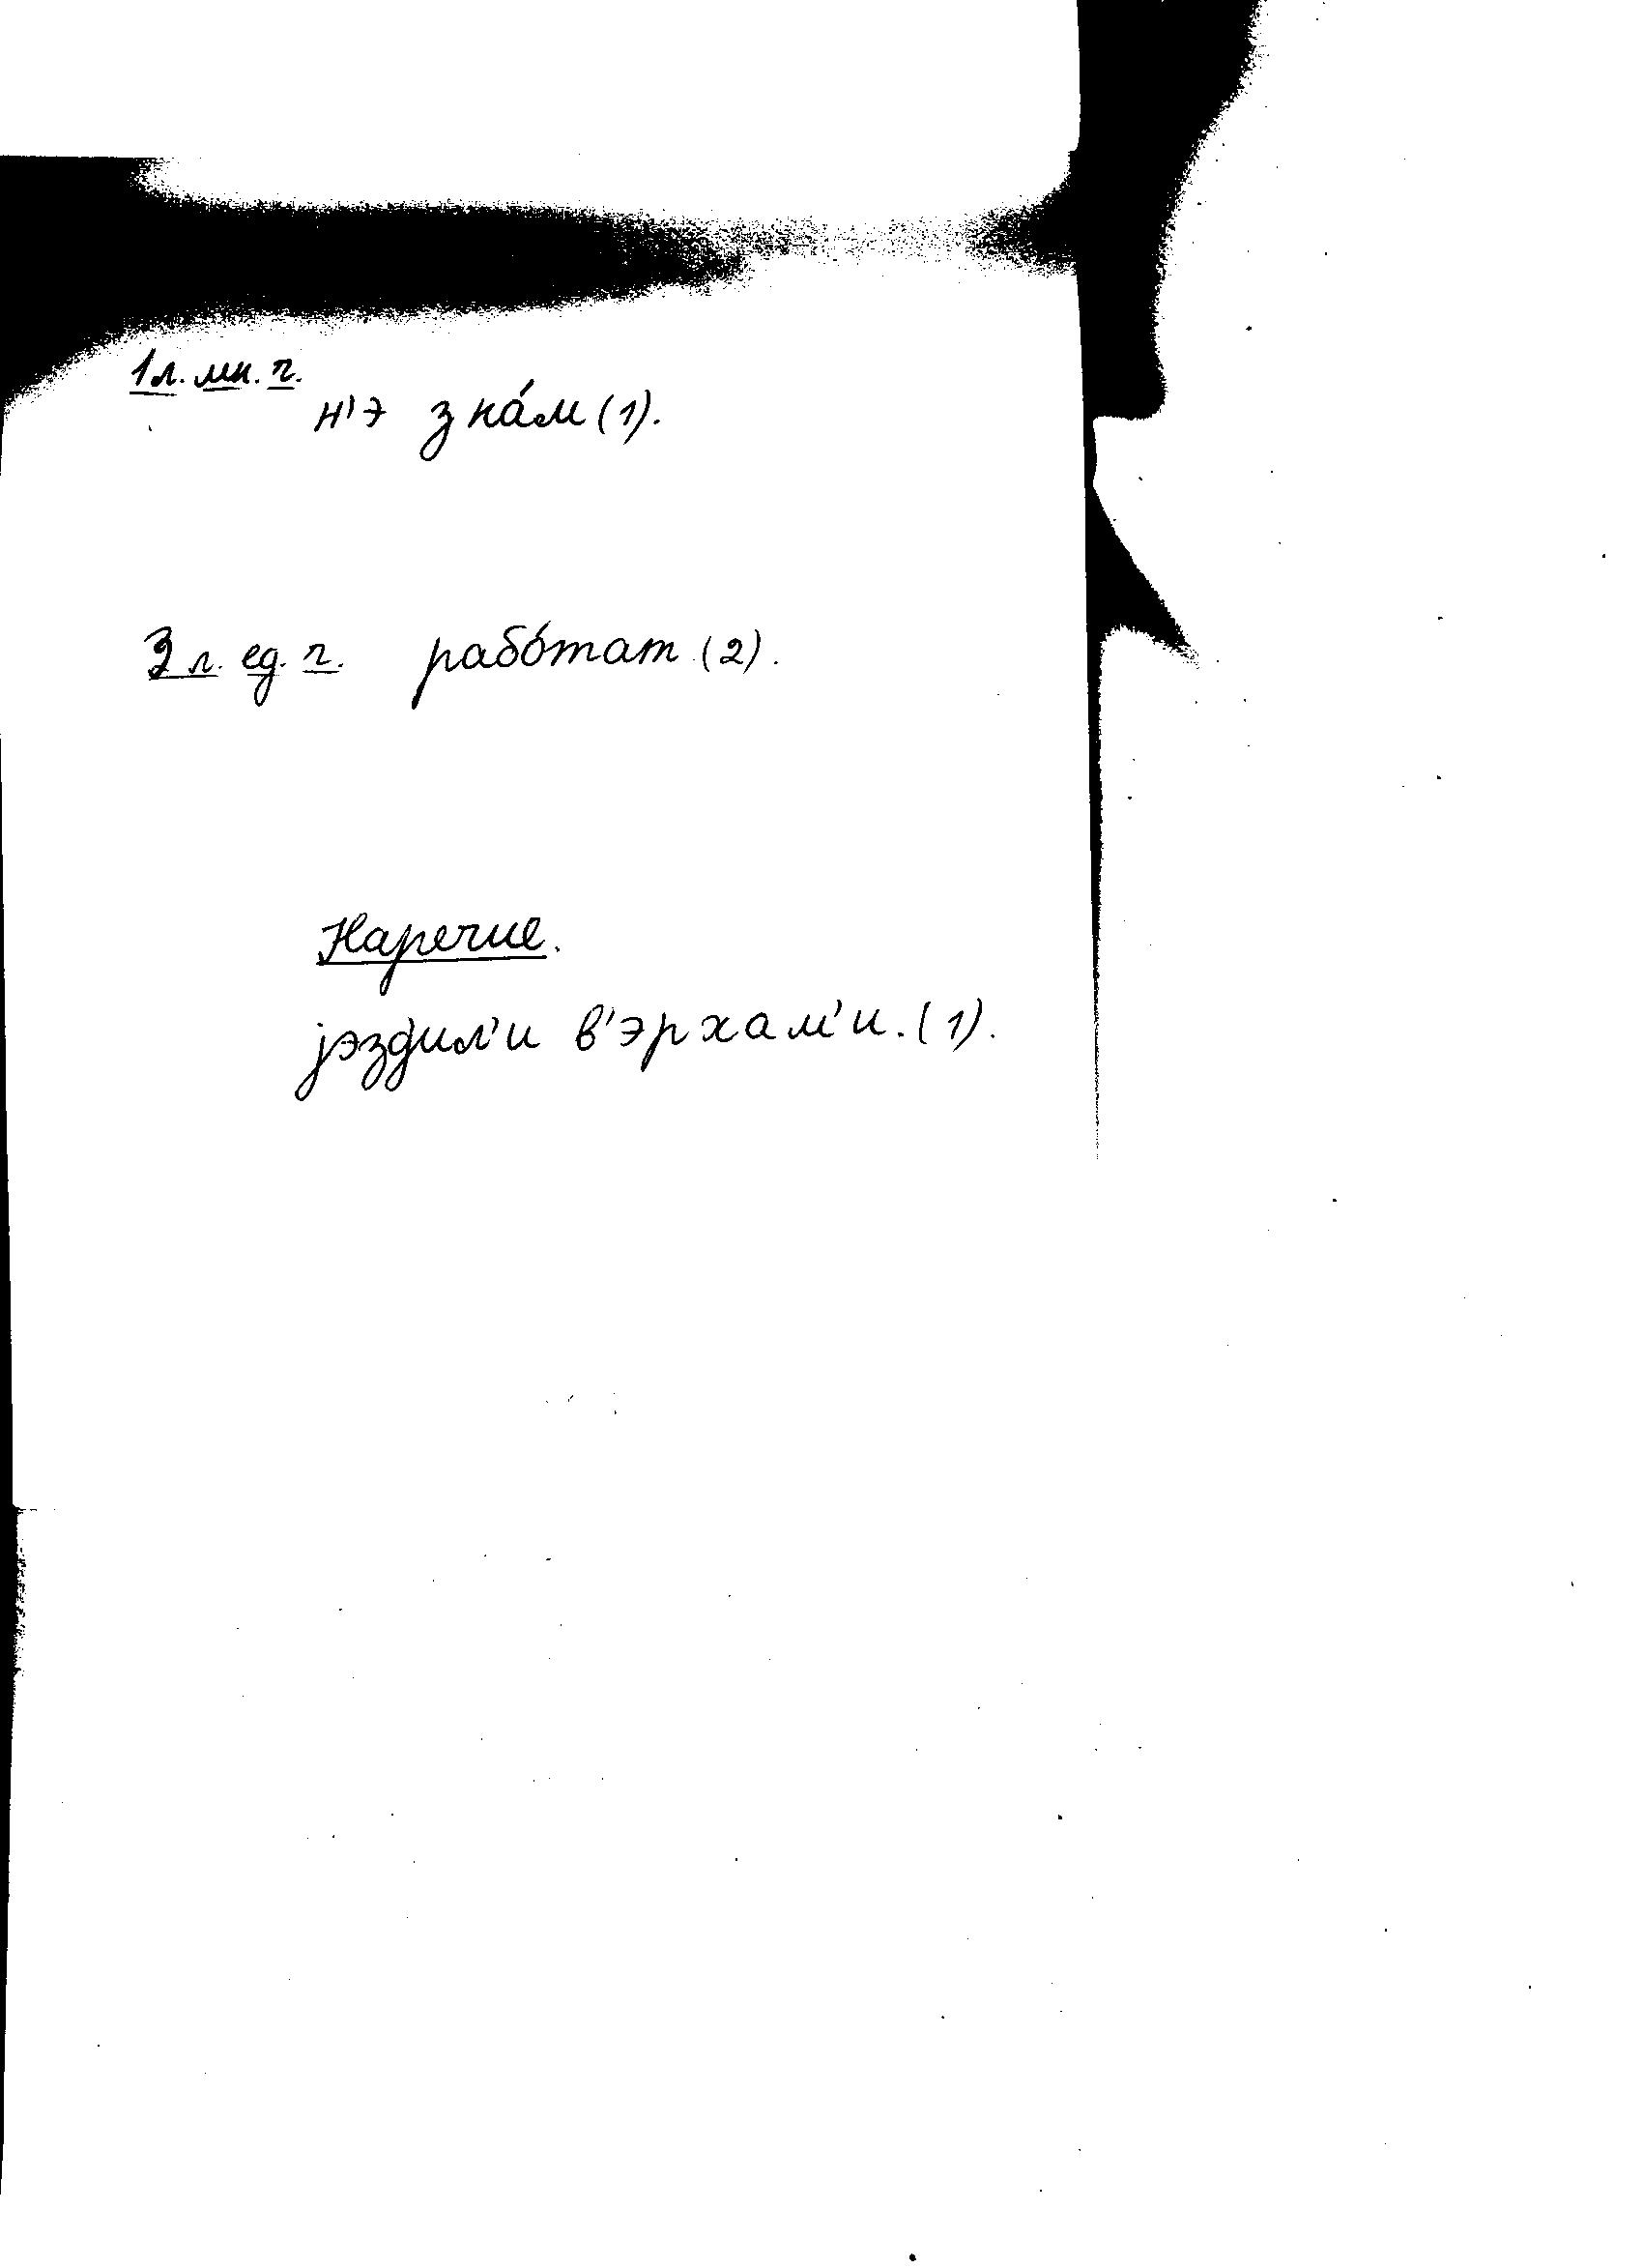 1 л. мн. ч.
н'э зна́м (1).
3 л. ед. ч. рабо́тат (2).
Наречие.
jэздил'и в'эрхам'и. (1).